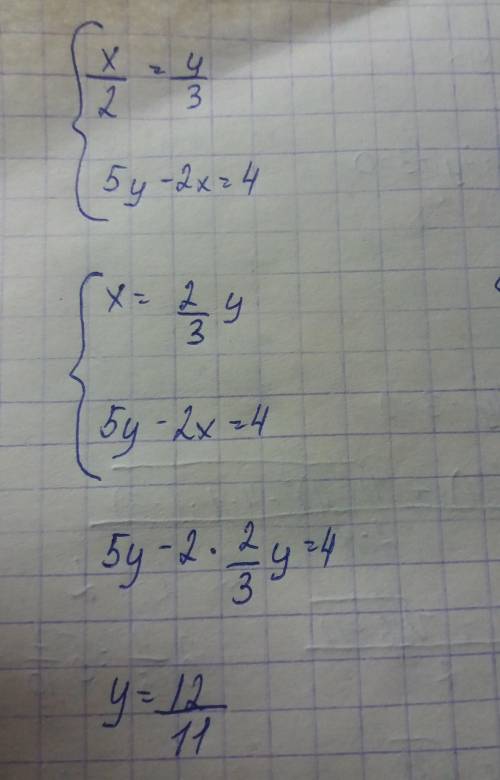 x/2 = y/3
5y - 2x = 4
x = 2/3 y
5y - 2x = 4
5y - 2 · 2/3 y = 4
y = 12/11